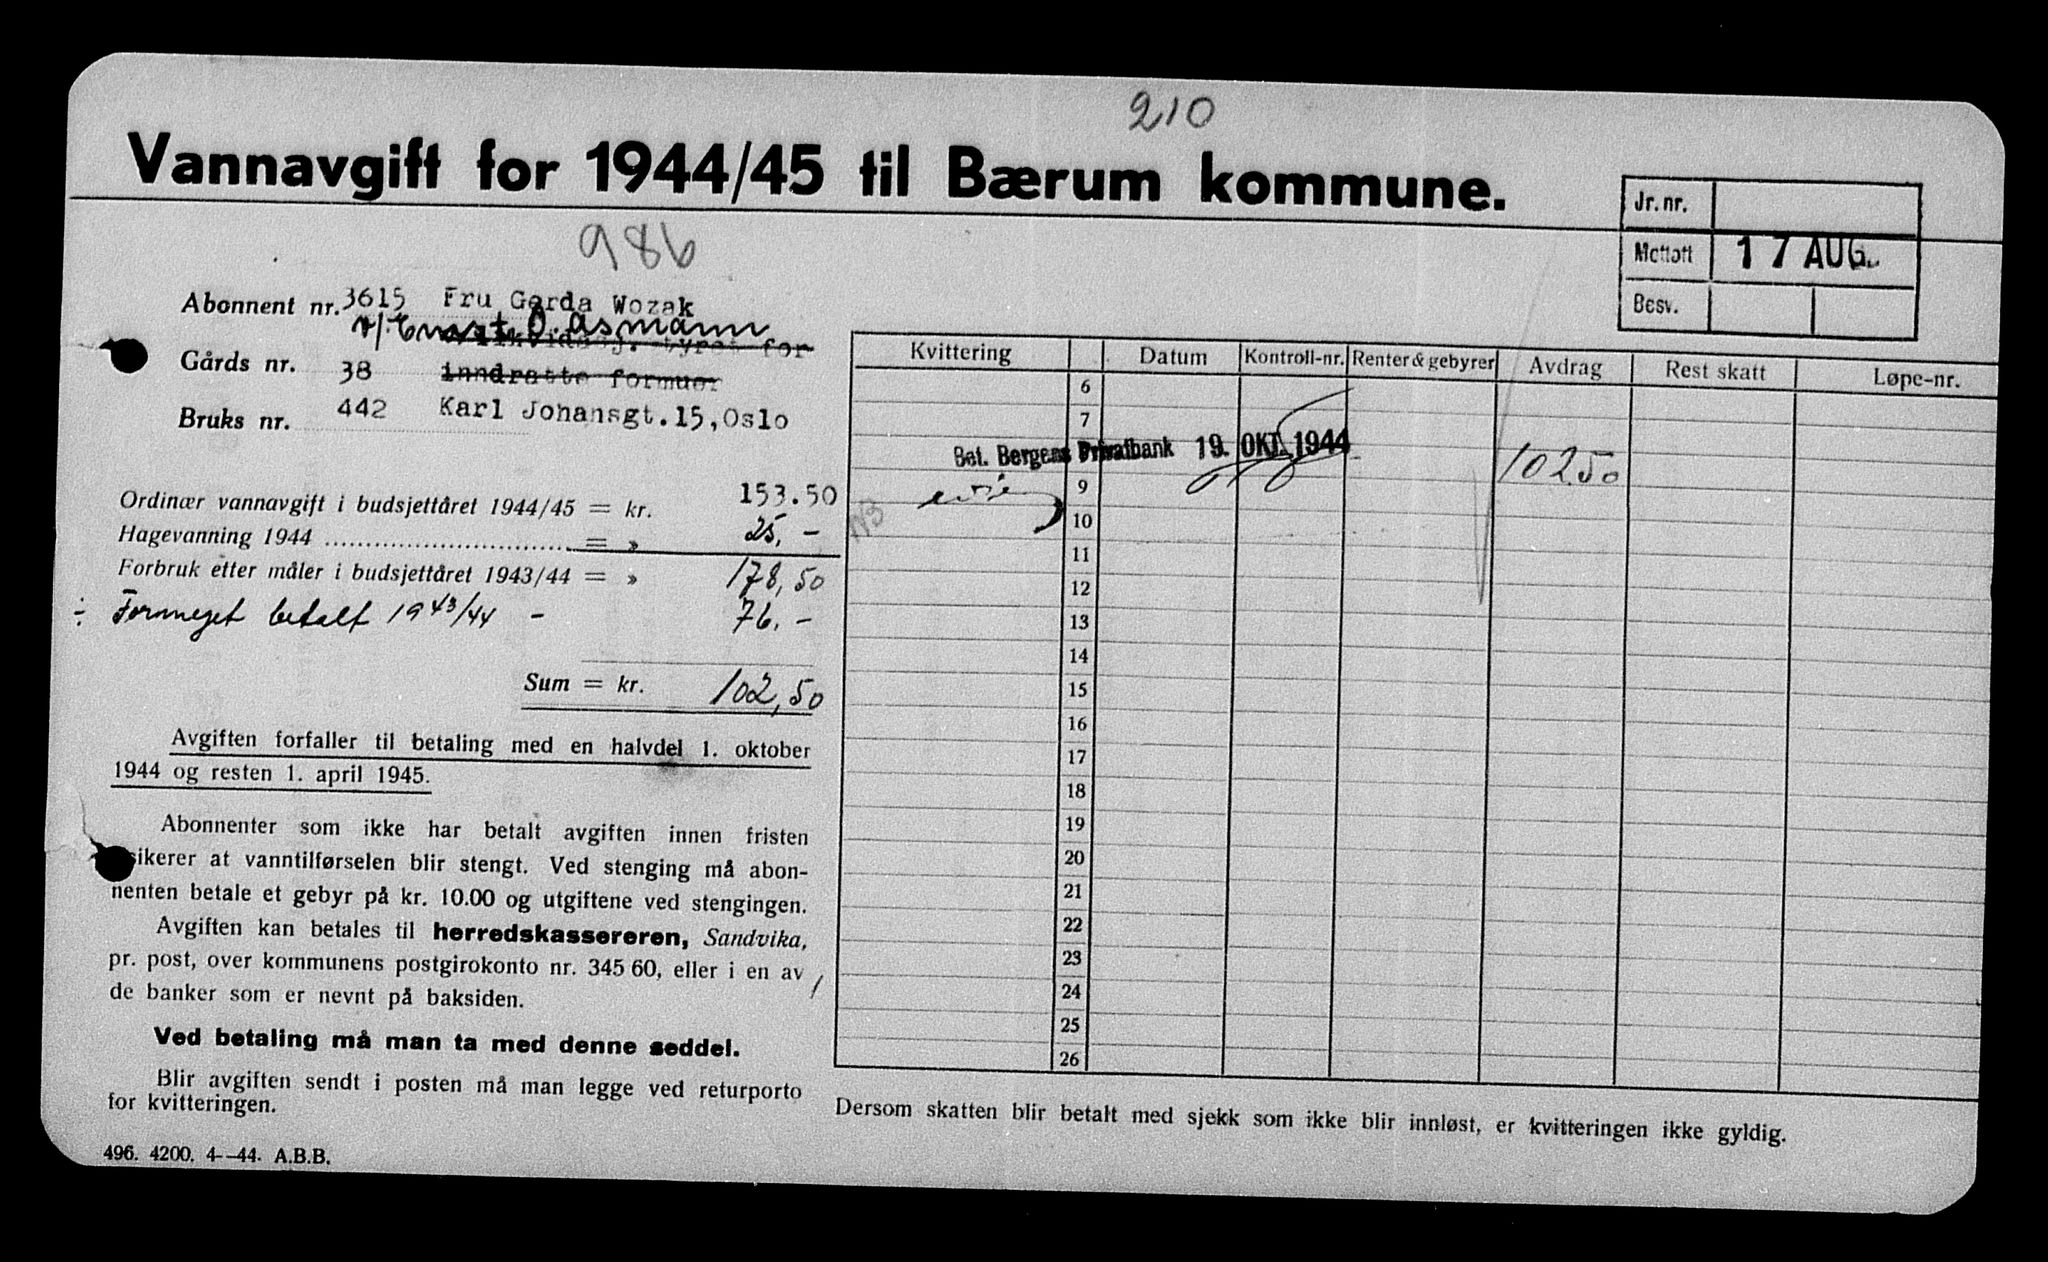 210
Vannavgift for 1944/45 til Bærum kommune.
Jr. nr.
Mottatt 17 AUG.
Besv.
986
Abonnent nr. 3615 Fru Gerda Wozak
v/ Ernst O. Asmann
for
Gårds nr. 38 inndratte formuer
Bruks nr. 442 Karl Johansgt.15, Oslo
Ordinær vannavgift i budsjettåret 1944/45 = kr. 153.50
Hagevanning 1944 = » 25,-
Forbruk etter måler i budsjettåret 1943/44 = » 178,50
÷ Formeget betalt 1943/44 - 76.-
Sum = kr. 102,50
Avgiften forfaller til betaling med en halvdel 1. oktober
1944 og resten 1. april 1945.
Abonnenter som ikke har betalt avgiften innen fristen
sikerer at vanntilførselen blir stengt. Ved stenging må abon-
nenten betale et gebyr på kr. 10.00 og utgiftene ved stengingen.
Avgiften kan betales til herredskassereren, Sandvika,
pr. post, over kommunens postgirokonto nr. 345 60, eller i en av
de banker som er nevnt på baksiden.
Ved betaling må man ta med denne seddel.
Blir avgiften sendt i posten må man legge ved returporto
for kvitteringen.
496. 4200. 4--44. A.B.B.
Kvittering Datum Kontroll-nr. Renter & gebyrer Avdrag Rest skatt Løpe-nr.
6
7
Bet. Bergens Privatbank 19. OKT. 1944 102.50
9
10
11
12
13
14
15
16
17
18
19
20
21
22
23
24
25
26
Dersom skatten blir betalt med sjekk som ikke blir innløst, er kvitteringen ikke gyldig.